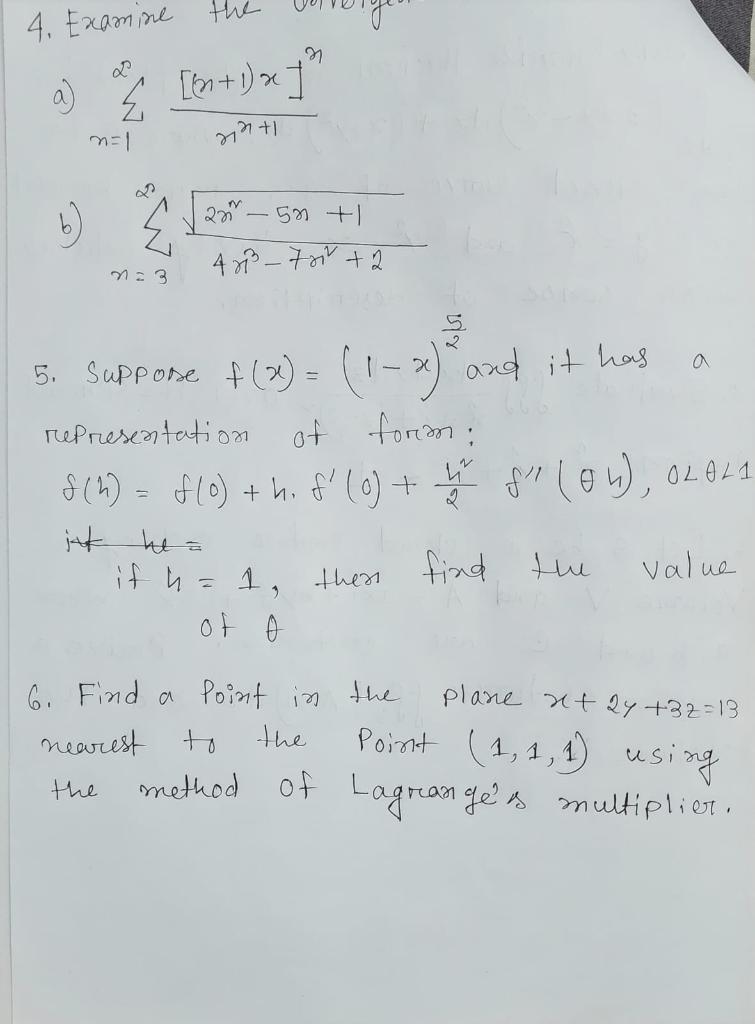 4. Examine the
a) ∞ Σ n=1 [(n+1)x]^n / n^n+1
b) ∞ Σ n=3 √2n² – 5n +1 / 4n³ – 7n² + 2
5. Suppose f(x) = (1–x)^5/2 and it has a
representation of form :
f(h) = f(0) + h. f'(0) + h²/2 f''(θh), 0<θ<1
if h = 1, then find the value
of θ
6. Find a Point in the plane x+ 2y +3z=13
nearest to the Point (1,1,1) using
the method of Lagrange's multiplier.